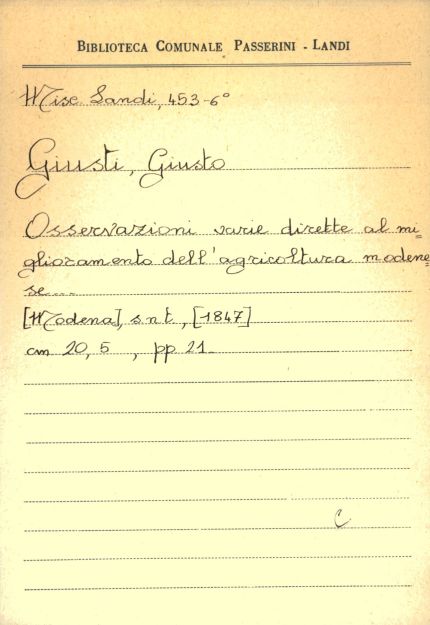 BIBLIOTECA COMUNALE PASSERINI - LANDI
Misc Landi, 453-6°
Giusti, Giusto
Osservazioni varie dirette al mi=
glioramento dell'agricoltura modene=
se...
[Modena], s n t, [1847]
cm 20,5 , pp 21
C